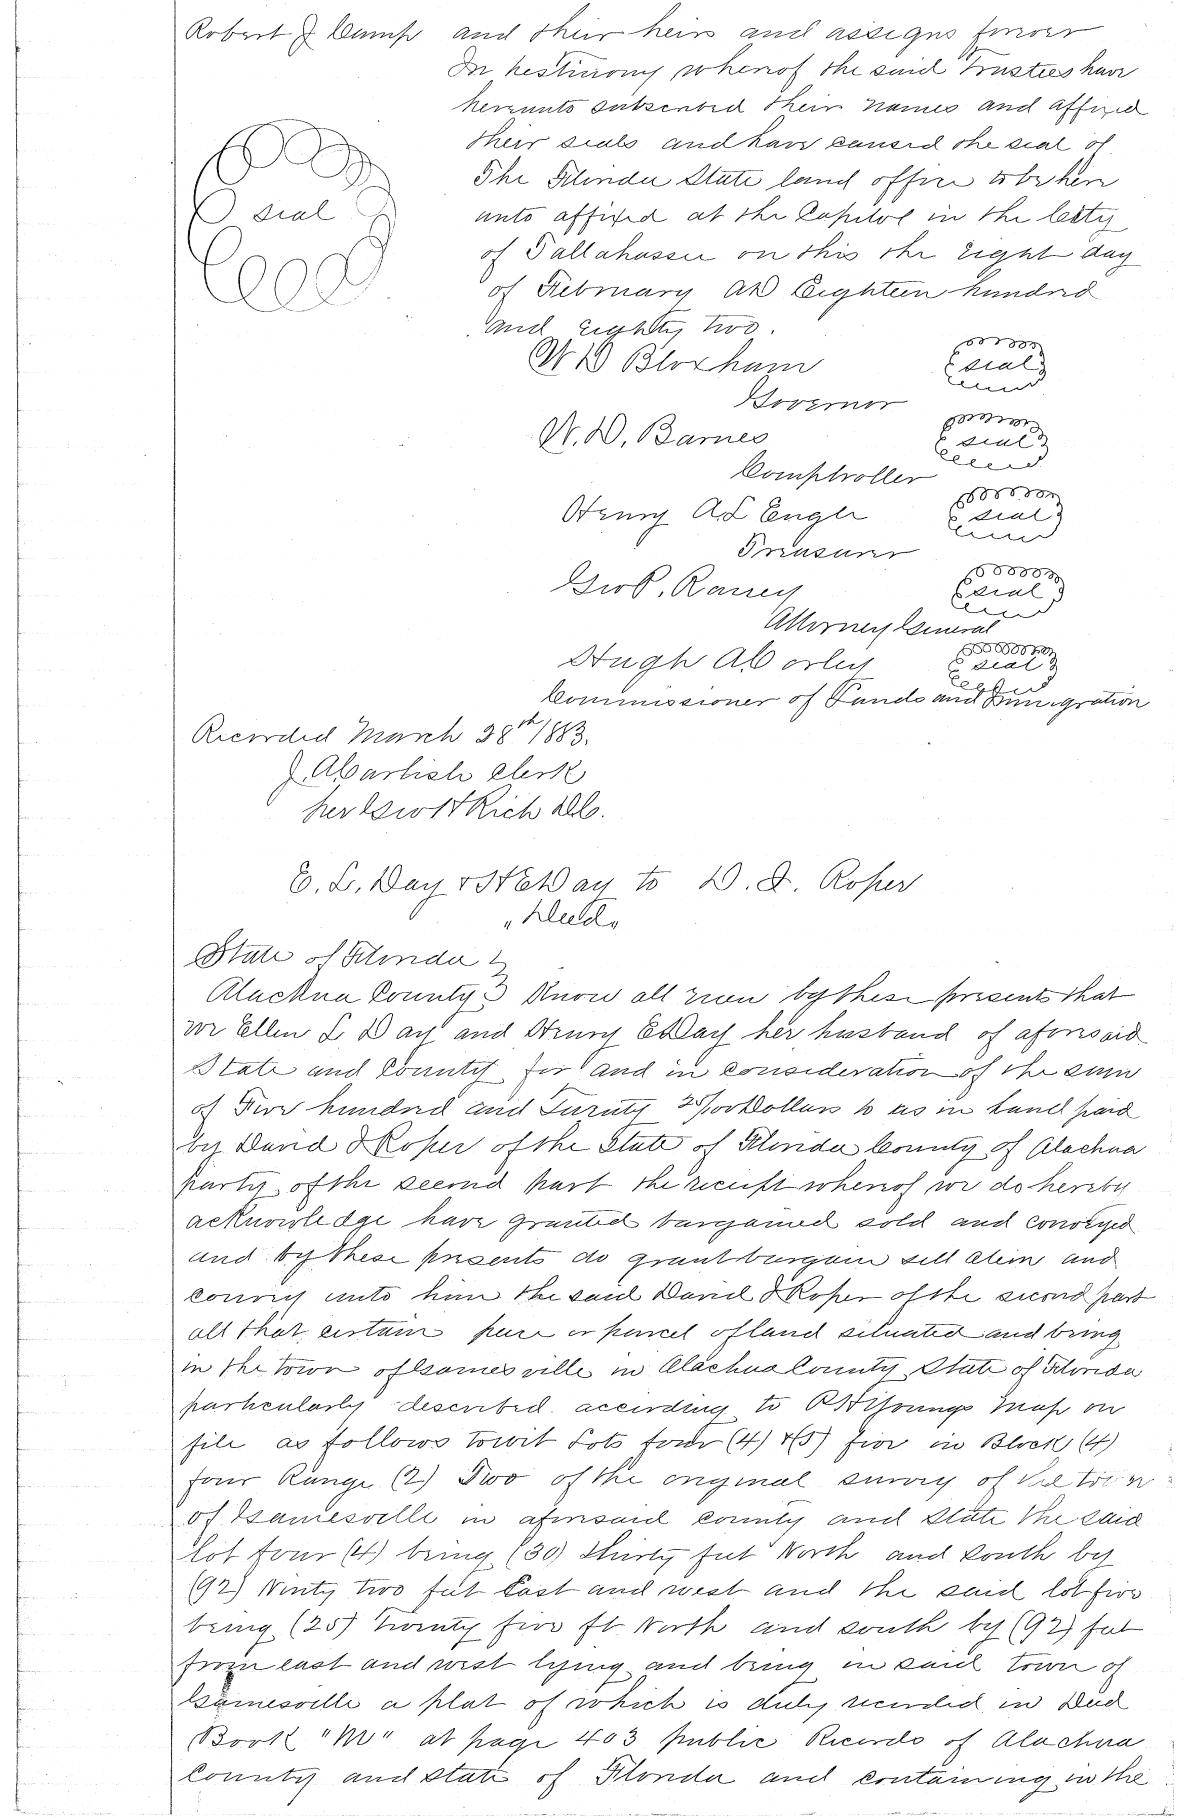 Robert J Camp and their heirs and assigns forever
In testimony whereof the said Trustees have
hereunto subscribed their names and affixed
their seals and have caused the seal of
The Florida State land office to be here
unto affixed at the Capitol in the City
seal
of Tallahassee on this the eight day
of February AD Eighteen hundred
and eighty two.
W D Bloxham seal
Governor
W. D. Barnes seal
Comptroller
Henry A L Engle seal
Treasurer
Geo P. Raney seal
Attorney General
Hugh A Corley seal
Commissioner of Lands and Immigration
Recorded March 28th 1883.
J. A Carlisle Clerk
per Geo H Rich D.C.
E. L. Day & H E Day to D. J. Roper
"Deed"
State of Florida }
Alachua County } Know all men by these presents that
we Ellen L Day and Henry E Day her husband of aforesaid
State and County for and in consideration of the sum
of Five hundred and Twenty Dollars to us in hand paid
by David J Roper of the State of Florida County of Alachua
party of the second part the receipt whereof we do hereby
acknowledge have granted bargained sold and conveyed
and by these presents do grant bargain sell alien and
convey unto him the said David J Roper of the second part
all that certain piece or parcel of land situated and being
in the town of Gainesville in Alachua County State of Florida
particularly described according to Youngs map on
file as follows towit Lots four (4) & (5) five in Block (4)
four Range (2) Two of the original survey of the town
of Gainesville in aforesaid county and state the said
lot four (4) being (30) thirty feet North and South by
(92) Ninty two feet East and west and the said lot five
being (25) twenty five ft North and south by (92) feet
from east and west lying and being in said town of
Gainesville a plat of which is duly recorded in Deed
Book "M" at page 403 public Records of Alachua
County and State of Florida and containing in the